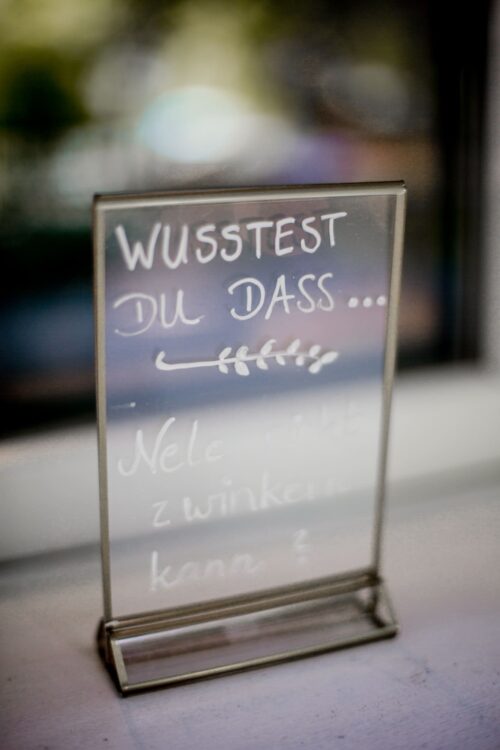 WUSSTEST
DU DASS...
Nele nicht
zwinkern
kann?